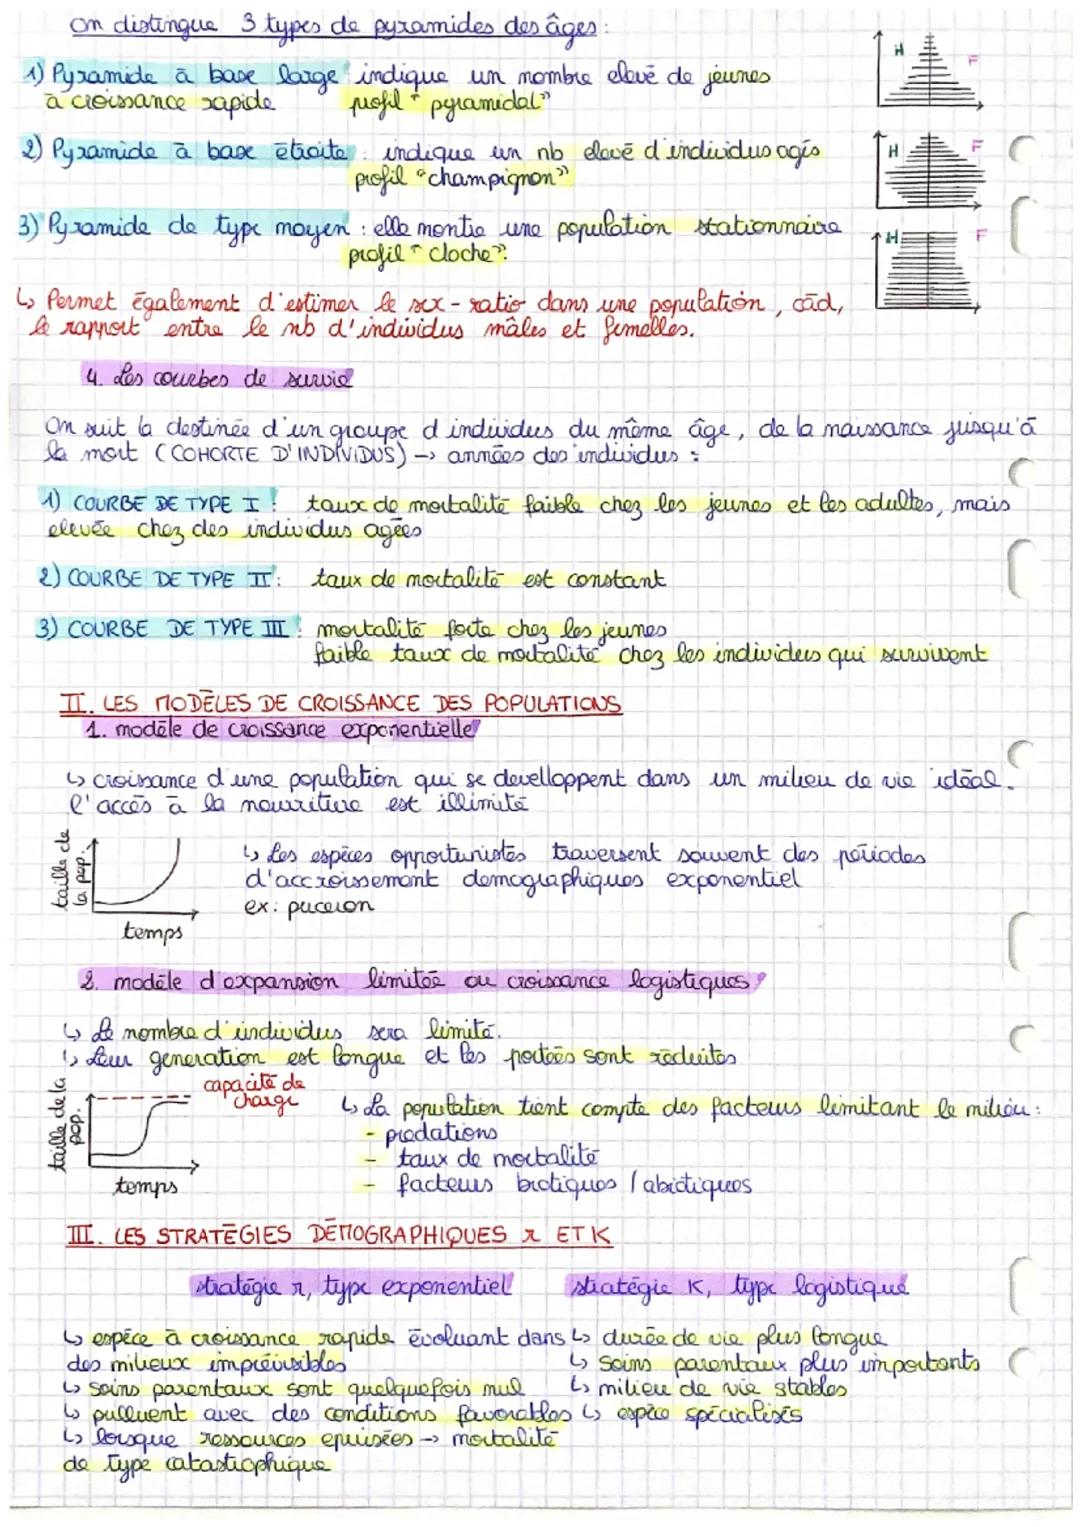 On distingue 3 types de pyramides des âges :
1) Pyramide à base large indique un nombre elevé de jeunes
à croissance rapide profil "pyramidal"
H F
2) Pyramide à base étroite : indique un nb elevé d'individus agés
profil "champignon"
H F
3) Pyramide de type moyen : elle montre une population stationnaire
profil "cloche".
H F
↳ Permet également d'estimer le sex-ratio dans une population, càd,
le rapport entre le nb d'individus mâles et femelles.
4. Les courbes de survie
On suit la destinée d'un groupe d'individus du même âge, de la naissance jusqu'à
la mort (COHORTE D'INDIVIDUS) → années des individus :
1) COURBE DE TYPE I : taux de mortalité faible chez les jeunes et les adultes, mais
elevée chez des individus agées
2) COURBE DE TYPE II : taux de mortalité est constant
3) COURBE DE TYPE III : mortalité forte chez les jeunes
faible taux de mortalité chez les individus qui survivent
II. LES MODÈLES DE CROISSANCE DES POPULATIONS
1. modèle de croissance exponentielle
↳ croissance d'une population qui se develloppent dans un milieu de vie idéal.
l'accès à la nourriture est illimité
taille de
la pop.
temps
↳ Les espèces opportunistes traversent souvent des périodes
d'accroissement demographiques exponentiel
ex : puceron
2. modèle d'expansion limitée ou croissance logistiques
↳ Le nombre d'individus sera limité.
↳ Leur generation est longue et les portées sont réduites
taille de la
pop.
capacité de
charge
temps
↳ La population tient compte des facteurs limitant le milieu :
- prédations
- taux de mortalité
- facteurs biotiques / abiotiques
III. LES STRATÉGIES DÉMOGRAPHIQUES r ET K
stratégie r, type exponentiel stratégie K, type logistique
↳ espèce à croissance rapide évoluant dans ↳ durée de vie plus longue
des milieux imprévisibles ↳ Soins parentaux plus importants
↳ Soins parentaux sont quelquefois nul ↳ milieu de vie stables
↳ pulluent avec des conditions favorables ↳ espèce spécialisés
↳ lorsque ressources epuisées → mortalité
de type catastrophique